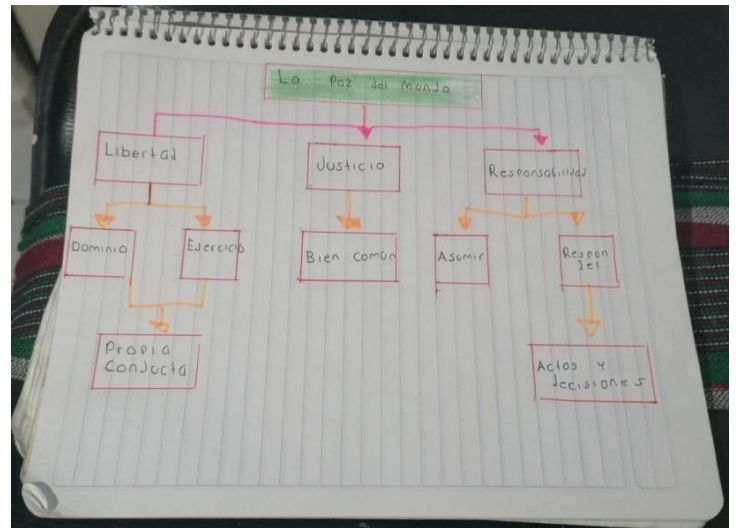 La Paz del mundo
Libertad
Justicia
Responsabilidad
Dominio
Ejercicio
Bien común
Asumir
Respon
der
Propia
Conducta
Actos y
decisiones